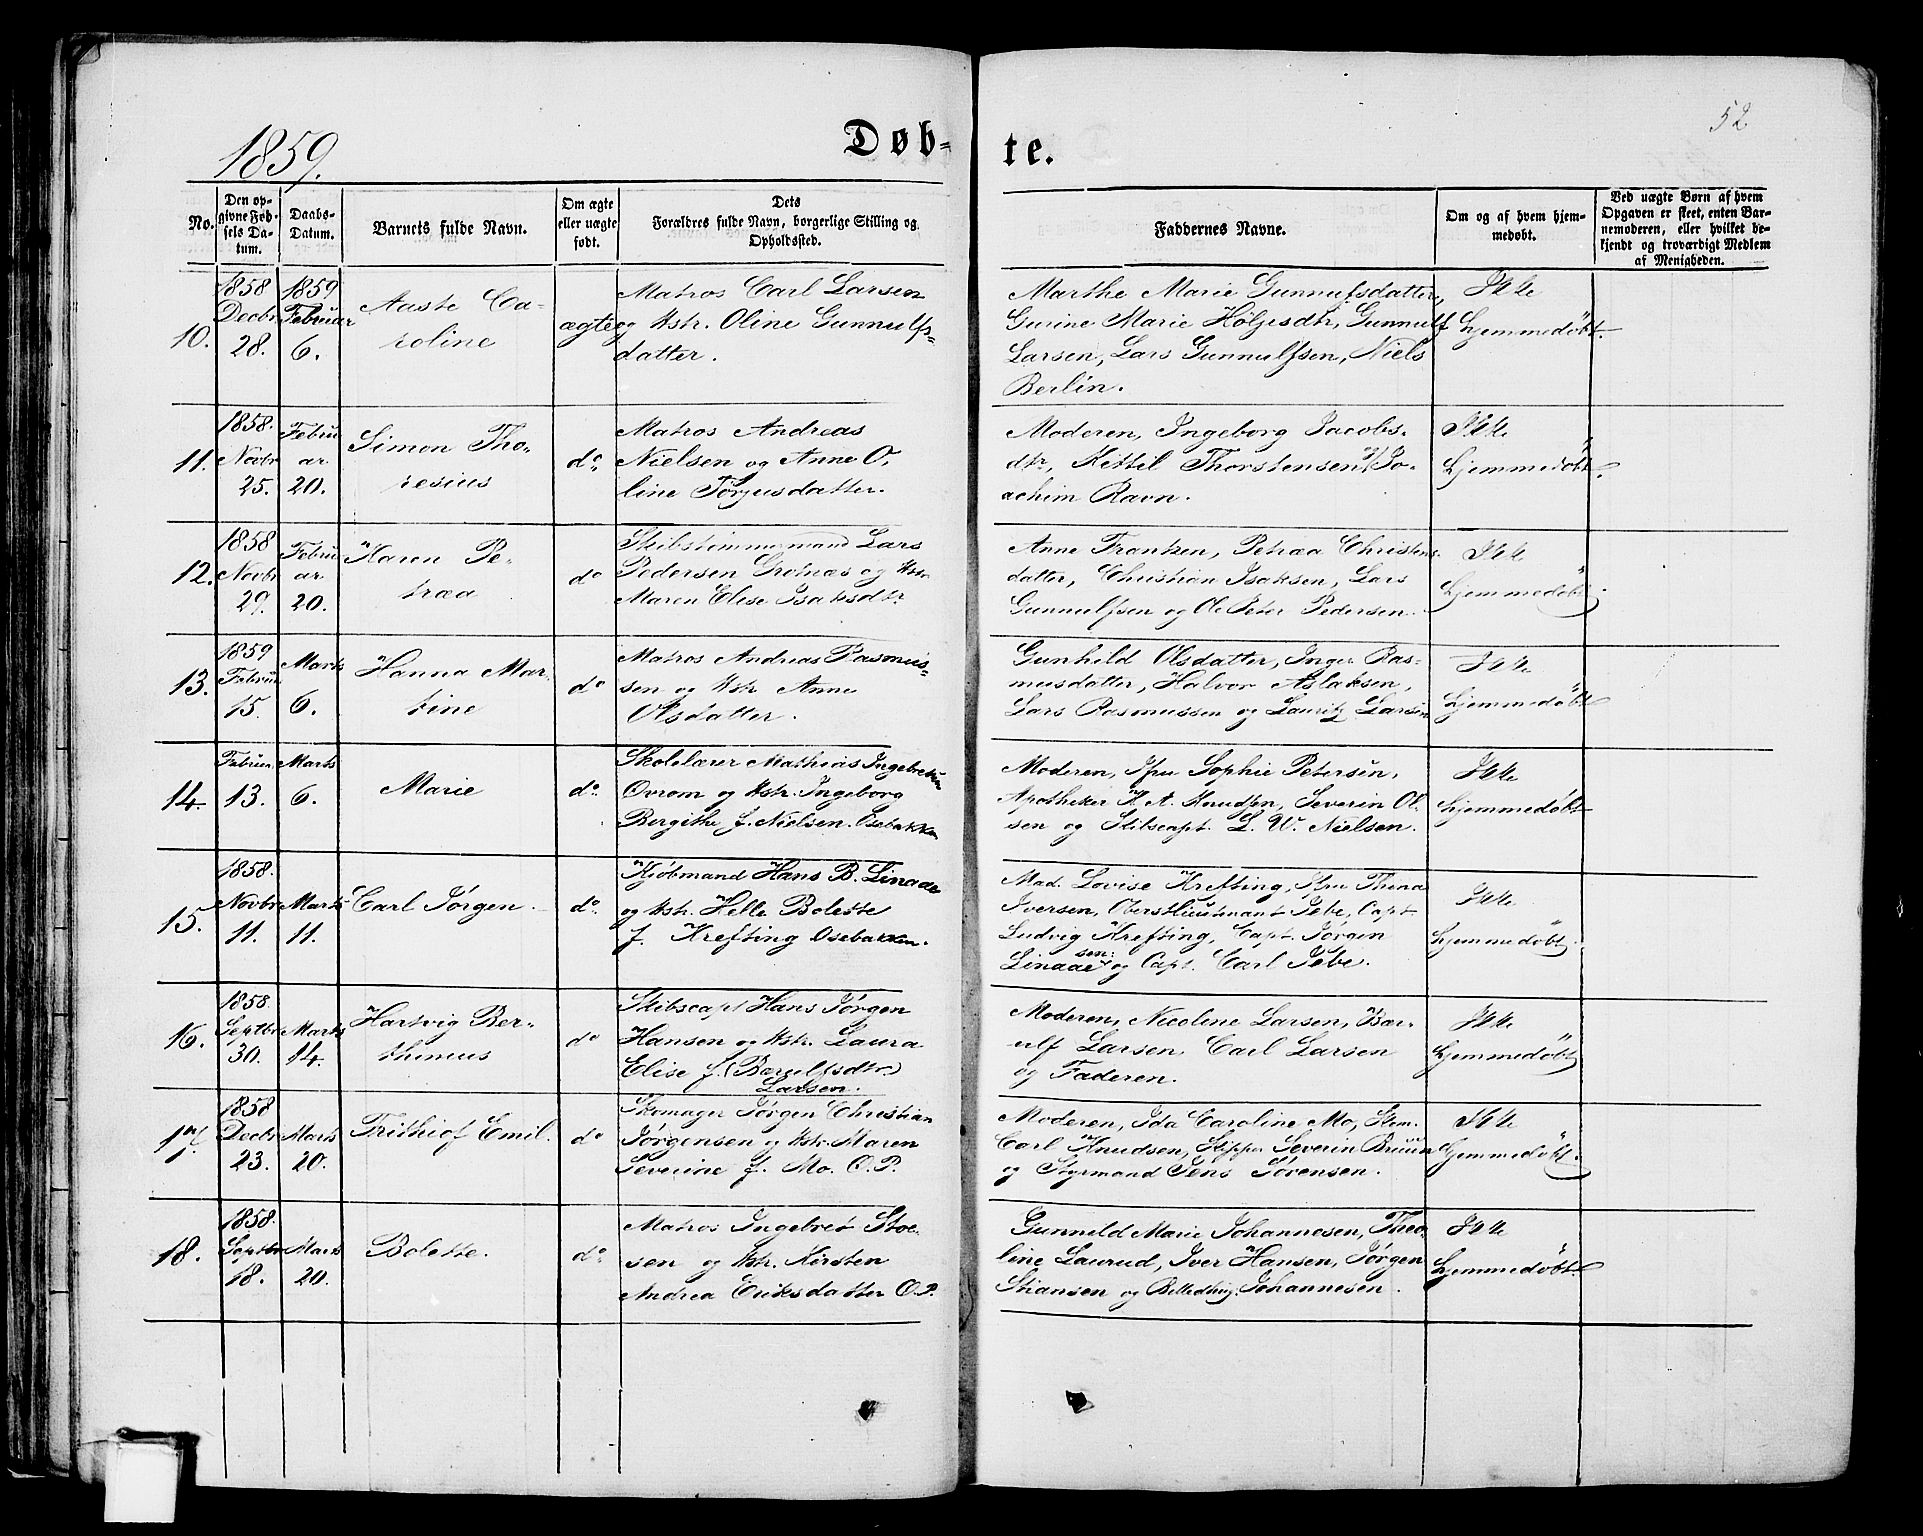 52
1859.
Døb-
te.
No.
Den op-
givne Fød-
sels Da-
tum.
Daabs-
Datum.
Barnets fulde Navn.
Om ægte
eller uægte
født.
Dets
Forældres fulde Navn, borgerlige Stilling og
Opholdssted.
Faddernes Navne.
Om og af hvem hjem-
medøbt.
Ved uægte Børn af hvem
Opgaven er skeet, enten Bar-
nemoderen, eller hvilket be-
kjendt og troværdigt Medlem
af Menigheden.
10.
1858
Decbr
28.
1859
Februar
6.
Aaste Ca-
roline
ægte
Matros Carl Larsen
og Kstr. Oline Gunnulfs-
datter.
Marthe Marie Gunnulfsdatter,
Gurine Marie Höljesdtr, Gunnulf
Larsen, Lars Gunnulfsen, Niels
Berlin.
Ikke
hjemmedøbt.
11.
1858.
Novbr
25.
Febru
ar
20.
Simon Tho-
resius
do
Matros Andreas
Nielsen og Anne O,
line Jørgusdatter.
Moderen, Ingeborg Jacobs-
dtr, Kettil Thorstensen, Jo-
achim Ravn.
Ikke
hjemmedøbt.
12.
1858
Novbr
29.
Febru
ar
20.
Karen Pe-
træa
do
Skibstimmermand Lars
Pedersen Grotnæs og Kstr
Maren Elise Isaksdtr
Anne Franken, Petræa Christens
datter, Christian Isaksen, Lars
Gunnulfsen og Ole Peter Pedersen.
Ikke
hjemmedøbt.
13.
1859
Febru
15.
Marts
6.
Hanna Mar-
tine
do
Matros Andreas Rasmus-
sen og Kstr Anne
Olsdatter.
Gunhild Olsdatter, Inger Ras-
musdatter, Halvor Aslaksen,
Lars Rasmussen og Lauritz Larsen
Ikke
hjemmedøbt
14.
Februar
13.
Marts
6.
Marie
do.
Skolelærer Mathias Ingebretsen
Ovrom og Kstr. Ingeborg
Bergithe f. Nielsen. Osebakken
Moderen, Sophie Petersen,
Apotheker K. A. Knudsen, Severin Ol-
sen og Skibscapt. L. W. Nielsen.
Ikke
hjemmedøbt
15.
1858.
Novbr
11.
Marts
11.
Carl Jørgen.
do.
Kjøbmand Hans B. Linaae
og Kstr. Helle Bolette
f. Krefting Osebakken.
Mad. Lovise Krefting, Fru Thina
Iversen, Oberstlieutenant Jebe, Capt
Ludvig Krefting, Capt. Jørgen
Linaae sen: og Capt. Carl Jebe.
Ikke
hjemmedøbt.
16.
1858.
Septbr
30.
Marts
14.
Hartvig Ber-
thinius
do
Skibscapt Hans Jørgen
Hansen og Kstr. Laura
Elise f. (Bærulfsdtr.)
Larsen.
Moderen, Nicoline Larsen, Bær-
ulf Larsen, Carl Larsen
og Faderen.
Ikke
hjemmedøbt
17.
1858
Decbr
23.
Marts
20.
Frithiof Emil.
do
Skomager Jørgen Christian
Jørgensen og Kstr. Maren
Severine f. Mo. O.P.
Moderen, Ida Caroline Mo, Skom.
Carl Knudsen, Skipper Severin Bruun
og Styrmand Jens Sørensen.
Ikke
hjemmedøbt.
18.
1858.
Septbr
18.
Marts
20.
Bolette.
do.
Matros Ingebret Stoe-
sen og Kstr. Kirsten
Andrea Eriksdatter O.P.
Gunneld Marie Johannesen, Theo-
line Laurud, Iver Hansen, Jørgen
Stiansen og Johannesen.
Ikke
hjemmedøbt.